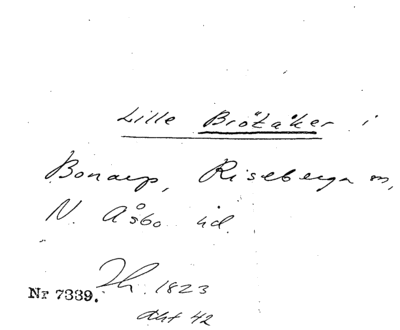 Lille Brötåker i
Bonarp, Riseberga sn,
N. Åsbo hd.
Nr 7339. Th. 1823
Akt 42